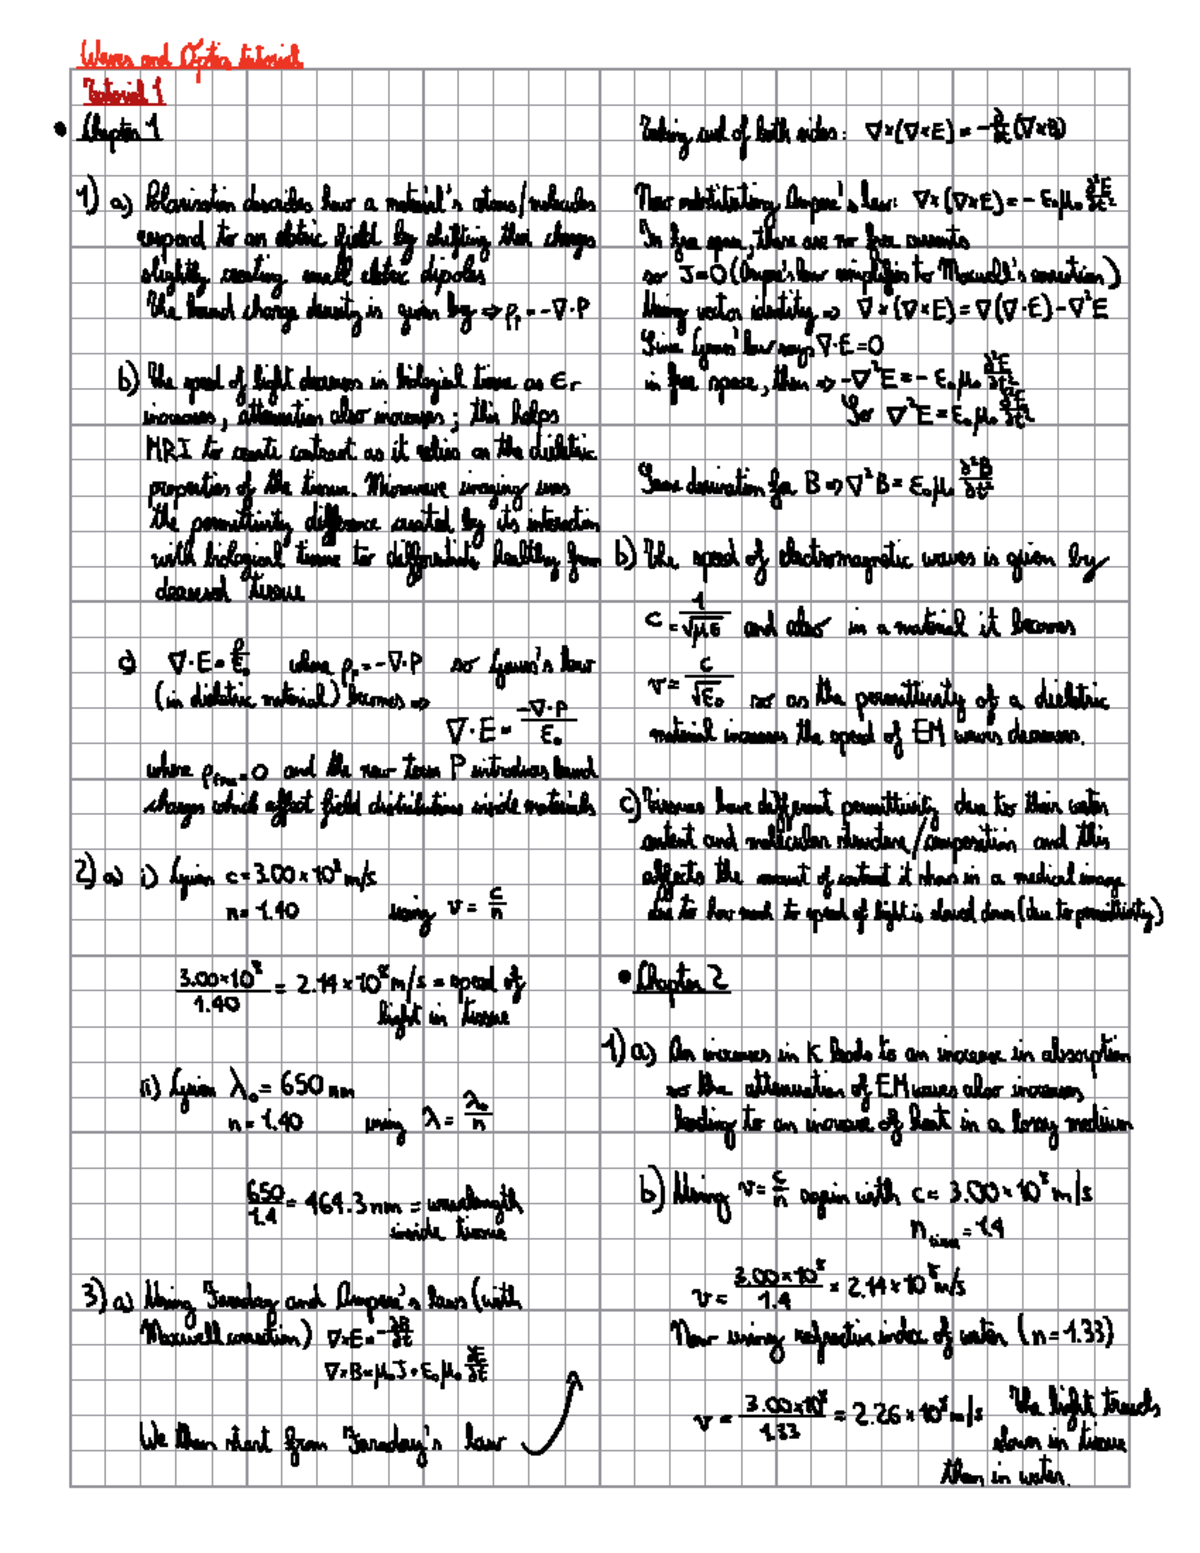 Waves and Optics tutorial
Tutorial 1
• Chapter 1
1) a) Polarisation describes how a material's atoms/molecules
respond to an eletric field by shifting their charges
slightly creating small eletric dipoles
The bound charge density is given by ⇒ ρₚ = -∇·P
b) The speed of light decreases in biological tissue as εr
increases, attenuation also increases; this helps
MRI to create contrast as it relies on the dieletric
properties of the tissue. Microwave imaging uses
the permittivity difference created by its interaction
with biological tissue to differentiate healthy from
deceased tissue
c) ∇·E = ρ/ε₀ where ρₚ = -∇·P so Gauss's law
(in dieletric material) becomes ⇒
∇·E = -∇·P/ε₀
where ρfree = 0 and the new term P introduces bound
charges which affect field distributions inside materials
2) a) i) Given c = 3.00 × 10⁸ m/s
n = 1.40 using v = c/n
3.00×10⁸/1.40 = 2.14 × 10⁸ m/s = speed of
light in tissue
ii) Given λ₀ = 650 nm
n = 1.40 using λ = λ₀/n
650/1.4 = 464.3 nm = wavelength
inside tissue
3) a) Using Faraday and Ampere's laws (with
Maxwell correction) ∇×E = -∂B/∂t
∇×B = μ₀J + ε₀μ₀ ∂E/∂t
We then start from Faraday's law
Taking curl of both sides: ∇×(∇×E) = -∂/∂t (∇×B)
Now substituting Ampere's law: ∇×(∇×E) = - ε₀μ₀ ∂²E/∂t²
In free space, there are no free currents
so J=0 (Ampere's law simplifies to Maxwell's correction)
Using vector identity ⇒ ∇×(∇×E) = ∇(∇·E) - ∇²E
Since Gauss' law says ∇·E = 0
in free space, then ⇒ -∇²E = - ε₀μ₀ ∂²E/∂t²
So ∇²E = ε₀μ₀ ∂²E/∂t²
Same derivation for B ⇒ ∇²B = ε₀μ₀ ∂²B/∂t²
b) The speed of electromagnetic waves is given by
c = 1/√με and also in a material it becomes
v = c/√ε₀ so as the permittivity of a dieletric
material increases the speed of EM waves decreases.
c) Tissues have different permittivity due to their water
content and molecular structure/composition and this
affects the amount of contrast it shows in a medical image
due to how much the speed of light is slowed down (due to permittivity)
• Chapter 2
1) a) An increase in K leads to an increase in absorption
so the attenuation of EM waves also increases
leading to an increase of heat in a lossy medium
b) Using v = c/n again with c = 3.00 × 10⁸ m/s
n tissue = 1.4
v = 3.00×10⁸/1.4 = 2.14 × 10⁸ m/s
Now using refractive index of water (n = 1.33)
v = 3.00×10⁸/1.33 = 2.26 × 10⁸ m/s The light travels
slower in tissue
than in water.